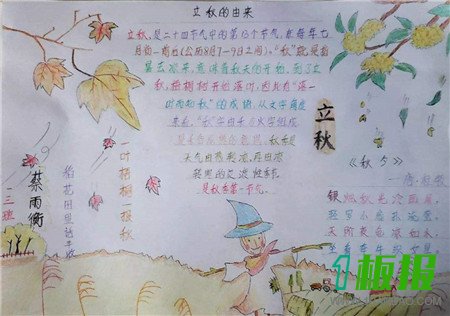 立秋的由来
立秋,是二十四节气中的第13个节气,在每年七
月初一前后(公历8月7—9日之间)。"秋"就是指
暑去凉来,意味着秋天的开始。到了立
秋,梧桐树开始落叶,因此有"落一
叶而知秋"的成语,从文字角度
来看,"秋"字由禾与火字组成,
是禾谷成熟的意思。秋季是
天气由热转凉,再由凉
转寒的过渡性季节
是秋季第一个节气。
立秋
《秋夕》
银烛秋光冷画屏,
轻罗小扇扑流萤。
天阶夜色凉如水,
一叶梧桐一报秋
稻花田里话丰收
蔡雨衡
一三班
板报